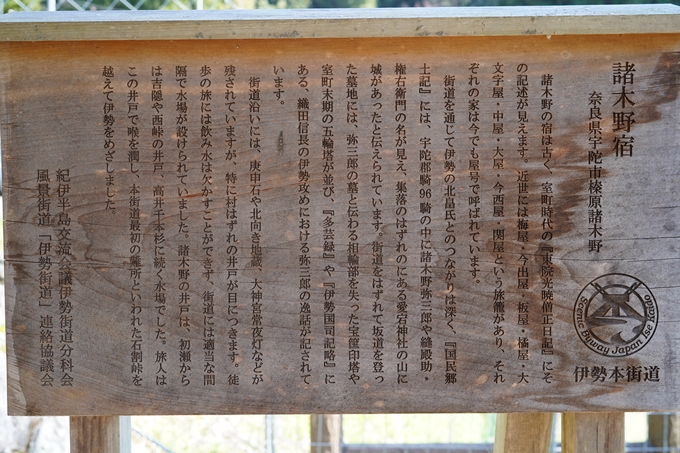 諸木野宿
奈良県宇陀市榛原諸木野
Scenic Byway Japan Ise Kaido
伊勢本街道
諸木野の宿は古く、室町時代の『東院光暁僧正日記』にそ
の記述が見えます。近世には海屋・今出屋・板屋・橘屋・大
文字屋・中屋・大屋・今西屋・関屋という旅籠があり、それ
ぞれの家は今でも屋号で呼ばれています。
街道を通じて伊勢の北畠氏とのつながりは深く、『国民郷
土記』には、宇陀郡騎96騎の中に諸木野弥三郎や縫殿助・
権右衛門の名が見え、集落のはずれのにある愛宕神社の山に
城があったと伝えられています。街道をはずれて坂道を登っ
た墓地には、弥三郎の墓と伝わる相輪部を失った宝篋印塔や
室町末期の五輪塔が並び、『多芸録』や『伊勢国司記略』に
ある、織田信長の伊勢攻めにおける弥三郎の逸話が記されて
います。
街道沿いには、庚申石や北向き地蔵、大神宮常夜灯などが
残されていますが、特に村はずれの井戸が目につきます。徒
歩の旅には飲み水は欠かすことができず、街道には適当な間
隔で水場が設けられていました。諸木野の井戸は、初瀬から
は吉隠や西峠の井戸、高井千本杉に続く水場でした。旅人は
この井戸で喉を潤し、本街道最初の難所といわれた石割峠を
越えて伊勢をめざしました。
紀伊半島交流会議伊勢街道分科会
風景街道「伊勢街道」連絡協議会